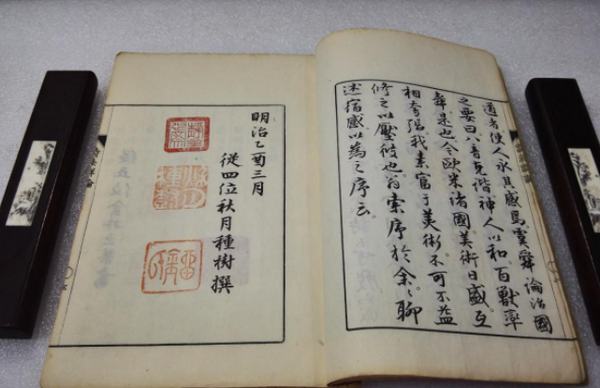 者使人永其感焉虞舜論治國
之要曰八音克諧神人以和百獸率
舞是也今歐米諸國美術日盛互
相夸張我素富于美術不可不益
修之以壓彼也索序於余々聊
述宿感以為之序云
明治乙酉三月
從四位秋月種樹撰